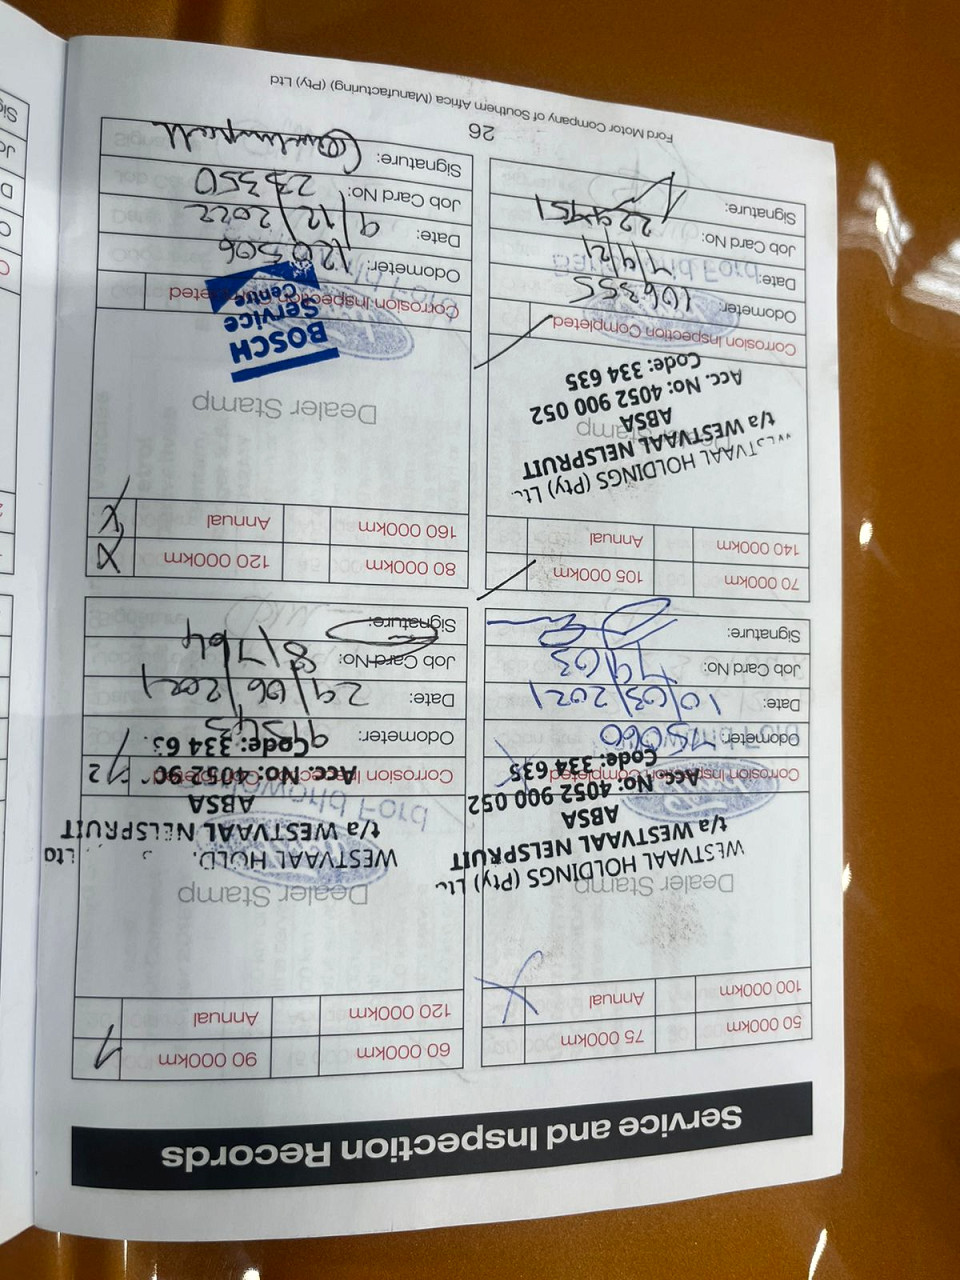 Service and Inspection Records
50 000km
75 000km
100 000km
Annual
Dealer Stamp
WESTVAAL HOLDINGS (Pty) Lt
t/a WESTVAAL NELSPRUIT
ABSA
Acc. No: 4052 900 052
Code: 334 635
Corrosion Inspection Completed
Odometer: 75060
Date: 10/03/2021
Job Card No: 7903
Signature:
60 000km
90 000km
120 000km
Annual
Dealer Stamp
WESTVAAL HOLD. Ltd
t/a WESTVAAL NELSPRUIT
ABSA
Acc. No: 4052 90 2
Code: 334 63
Corrosion Inspection Completed
Odometer:
Date: 29/06/2021
Job Card No: 81764
Signature:
70 000km
105 000km
140 000km
Annual
Dealer Stamp
WESTVAAL HOLDINGS (Pty) Lt
t/a WESTVAAL NELSPRUIT
ABSA
Acc. No: 4052 900 052
Code: 334 635
Corrosion Inspection Completed
Odometer: 106355
Date: 7/9/21
Job Card No: 229451
Signature:
80 000km
120 000km
160 000km
Annual
Dealer Stamp
BOSCH
Service
Centre
Corrosion Inspection Completed
Odometer: 120506
Date: 9/12/2022
Job Card No: 23350
Signature:
26
Ford Motor Company of Southern Africa (Manufacturing) (Pty) Ltd